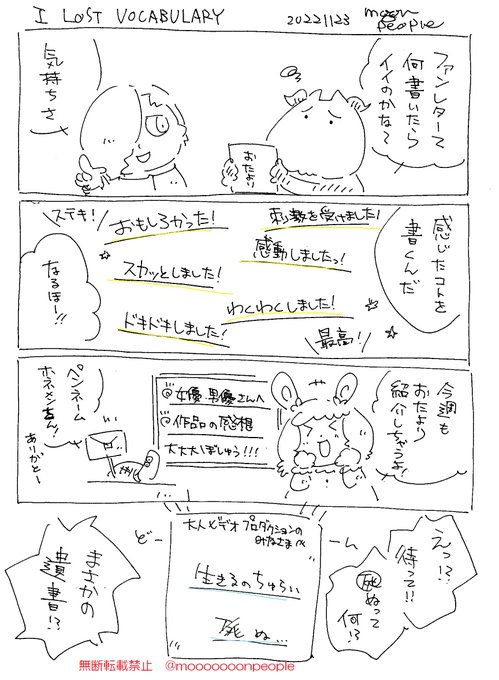 I LOST VOCABULARY
20221123
moon
people
ファンレターて
何書いたら
イイのかな〜
おたより
気持ちさ
感じたコトを
書くんだ
刺激を受けました!
おもしろかった!
ステキ!
感動しましたっ!
スカッとしました!
わくわくしました!
ドキドキしました!
最高!
なるほー!!
今週も
おたより
紹介しちゃうよ!
@女優・男優さんへ
@作品の感想
大大大ぼしゅう!!!
ペンネーム
ホネメンさん!
ありがとー
えっ!?
待って!!
死ぬって
何!?
大人ビデオプロダクションの
みなさまへ
生きるのちゅらい
死ぬ…
どーーん
まさかの
遺書!?
無断転載禁止 @mooooooonpeople